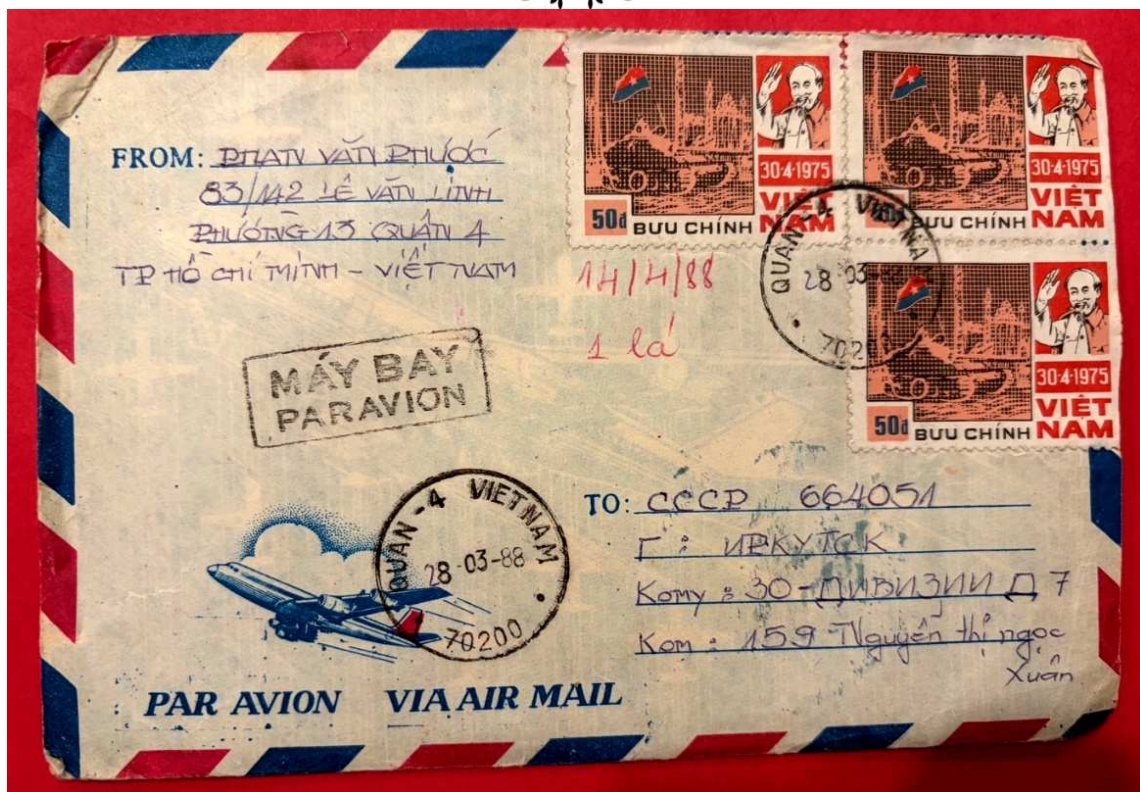 FROM: PHAN VĂN PHƯỚC
83/142 LÊ VĂN LINH
PHƯỜNG 13 QUẬN 4
TP HỒ CHÍ MINH - VIỆT NAM
30·4·1975
VIỆT NAM
50đ BƯU CHÍNH
30·4·1975
VIỆT NAM
BƯU CHÍNH
30·4·1975
VIỆT NAM
50đ BƯU CHÍNH
QUAN-4 VIETNAM
28-03-88
702
14/4/88
1 lá
MÁY BAY
PAR AVION
QUAN-4 VIETNAM
28-03-88
70200
TO: CCCP 664051
Г: ИРКУТСК
Кому: 30-ДИВИЗИИ Д 7
Ком: 159 Nguyễn thị ngọc
Xuân
PAR AVION VIA AIR MAIL